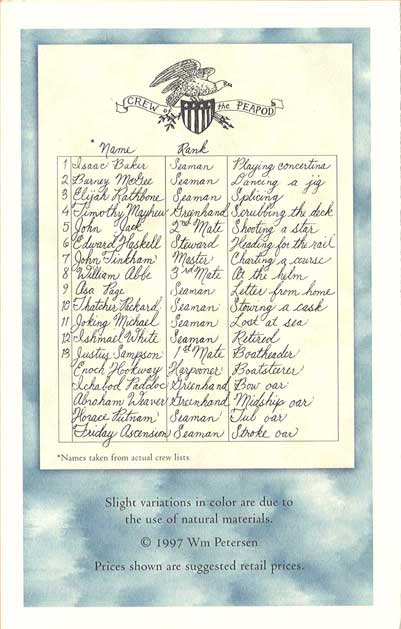 CREW of the PEAPOD
* Name Rank
1 Isaac Baker Seaman Playing concertina
2 Barney McGee Seaman Dancing a jig
3 Elijah Rathbone Seaman Splicing
4 Timothy Mayhew Greenhand Scrubbing the deck
5 John Jack 2nd Mate Shooting a star
6 Edward Haskell Steward Heading for the rail
7 John Tinkham Master Charting a course
8 William Abbe 3rd Mate At the helm
9 Asa Page Seaman Letter from home
10 Thatcher Rickard Seaman Stowing a cask
11 Joking Michael Seaman Lost at sea
12 Ishmael White Seaman Retired
13 Justus Sampson 1st Mate Boatheader
Enoch Hookway Harpooner Boatsteerer
Ichabod Paddoc Greenhand Bow oar
Abraham Weaver Greenhand Midship oar
Horace Putnam Seaman Tub oar
Friday Ascension Seaman Stroke oar
*Names taken from actual crew lists
Slight variations in color are due to
the use of natural materials.
© 1997 Wm Petersen
Prices shown are suggested retail prices.